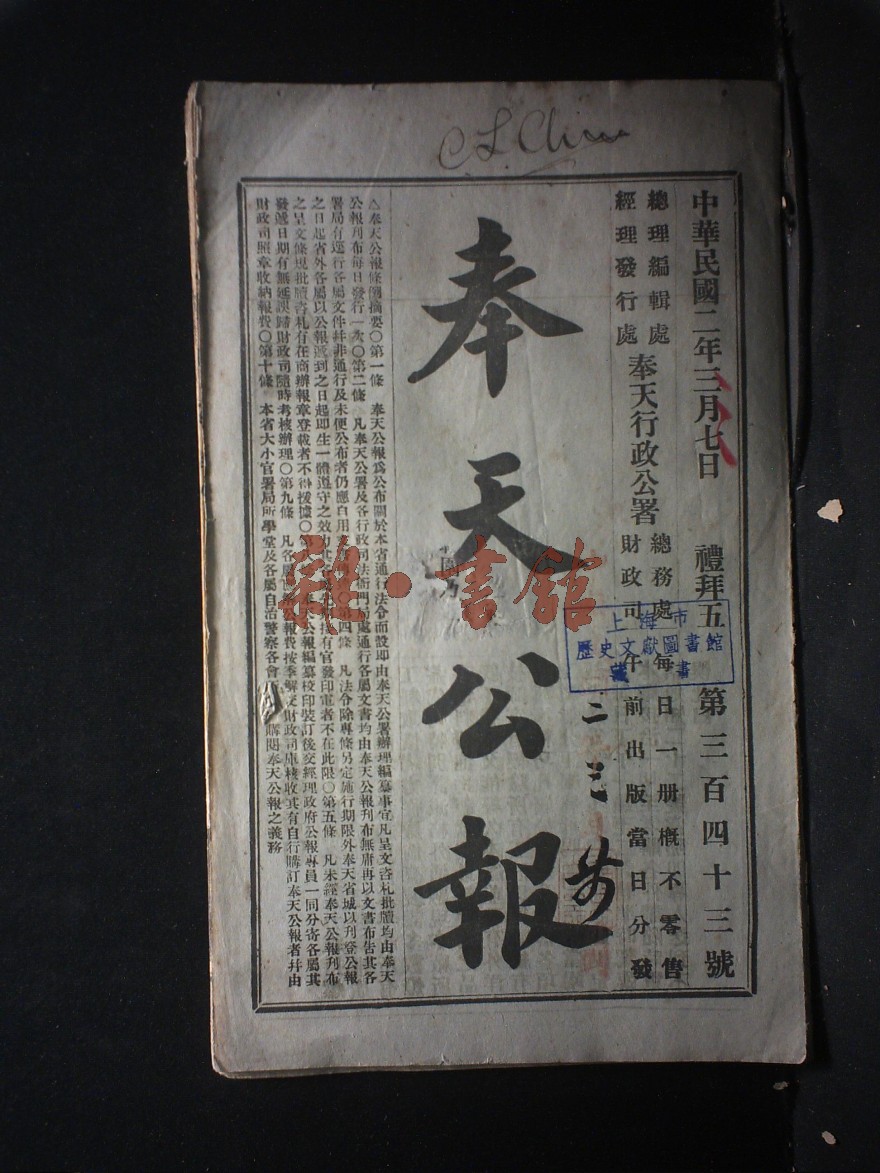 C L Chiu
中華民國二年三月七日 禮拜五 第三百四十三號
總理編輯處
經理發行處
奉天行政公署
總務處 每日一册概不零售
財政司 午前出版當日分發
上海市
歷史文獻圖書館
藏書
二三
奉天公報
△奉天公報條例摘要○第一條 奉天公報爲公布關於本省通行法令而設即由奉天公署辦理編纂事宜凡呈文咨札批牘均由奉天
公報刊布每日發行一次○第二條 凡奉天公署及各行政司法衙門局處通行各屬文書均由奉天公報刊布無庸再以文書布告其各
署局有逕行各屬文件幷非通行及未便公布者仍應自用 第四條 凡法令除專條另定施行期限外奉天省城以刊登公報
之日起省外各屬以公報遞到之日起即生一體遵守之效力 有官發印電者不在此限○第五條 凡未經奉天公報刊布
之呈文條規批牘咨札有在商辦報章登載者不得援據○第 奉天公報編纂校印裝訂後交經理政府公報專員一同分寄各屬其
發遞日期有無延誤歸財政司隨時考核辦理○第九條 凡各屬 公報費按季解交財政司庫核收其有自行購訂奉天公報者幷由
財政司照章收納報費○第十條 本省大小官署局所學堂及各屬自治警察各會 購閱奉天公報之義務
雜·書館